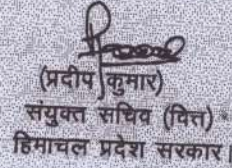 (प्रदीप कुमार)
संयुक्त सचिव (वित्त)
हिमाचल प्रदेश सरकार।